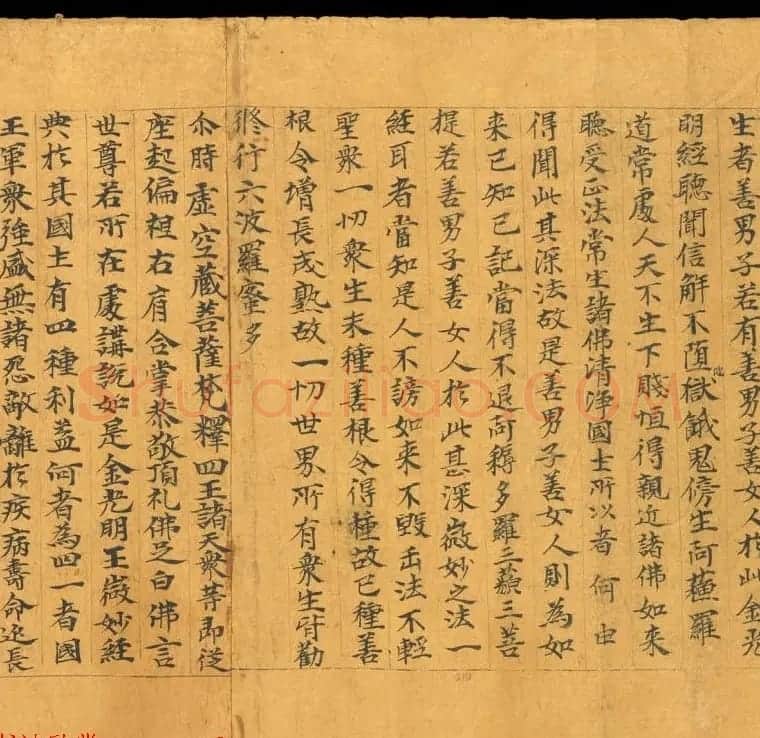 生者善男子若有善男子善女人於此金光
明經聽聞信解不墮地獄餓鬼傍生阿蘓羅
道常處人天不生下賤恒得親近諸佛如來
聽受正法常生諸佛清淨國土所以者何由
得聞此甚深法故是善男子善女人則為如
來已知已記當得不退阿耨多羅三藐三菩
提若善男子善女人於此甚深微妙之法一
經耳者當知是人不謗如來不毀正法不輕
聖眾一切眾生未種善根令得種故已種善
根令增長成熟故一切世界所有眾生皆勸
修行六波羅蜜多
尒時虛空藏菩薩梵釋四王諸天衆等即從
座起偏袒右肩合掌恭敬頂礼佛足白佛言
世尊若所在處講說如是金光明王微妙經
典於其國土有四種利益何者為四一者國
王軍衆強盛無諸怨敵離於疾病壽命延長
shufaziliao.COM